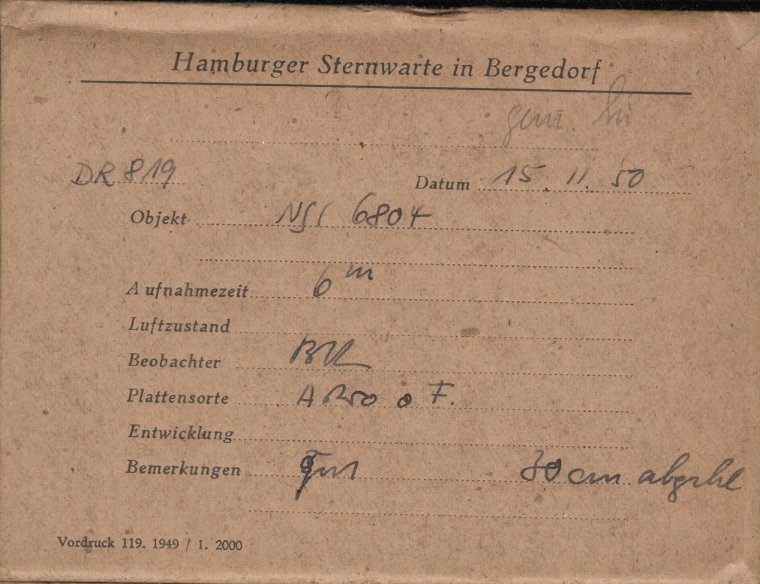 Hamburger Sternwarte in Bergedorf
DR 819
Datum 15. 11. 50
Objekt NGC 6804
Aufnahmezeit 6 m
Luftzustand
Beobachter
Plattensorte Astro o F.
Entwicklung
Bemerkungen gut 30 cm
Vordruck 119. 1949 / 1. 2000